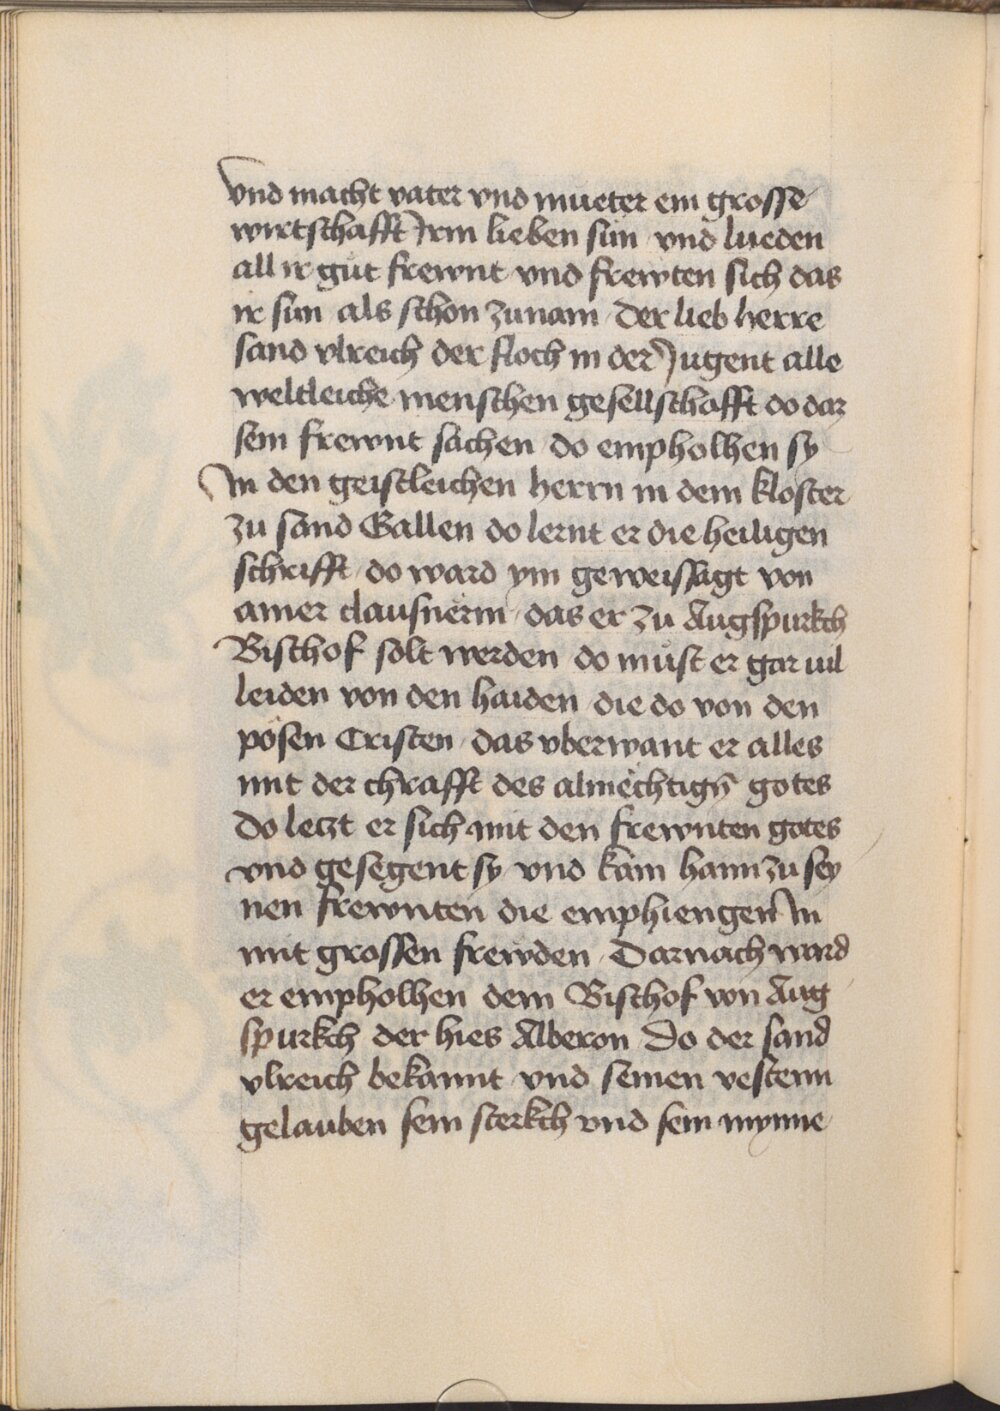 vnd macht vater vnd mueter ein grosse
wirtschafft Irm lieben sun vnd lueden
all ir gůt frewnt vnd frewten sich das
ir sun als schon zunam der lieb herre
sand vlreich der floch in der Jugent alle
weltleiche menschen gesellschafft do daz
sein frewnt sachen do empholhen sy
In den geistleichen herrn in dem kloster
zu sand Gallen do lernt er die heiligen
schrifft do ward ym geweissagt von
ainer clausnerin das er zu Augspurkch
Bischof solt werden do můst er gar uil
leiden von den haiden die do von den
pösen Cristen das vberwant er alles
mit der chrafft des almëchtigñ gotes
Do letzt er sich mit den frewnten gotes
vnd gesegent sy vnd kam haim zu sey
nen frewnten die emphiengen In
mit grossen frewden Darnach ward
er empholhen dem Bischof von Aug
spurkch der hies Alberon Do der sand
vlreich bekannt vnd seinen vestenn
gelauben sein sterkch vnd sein mynne